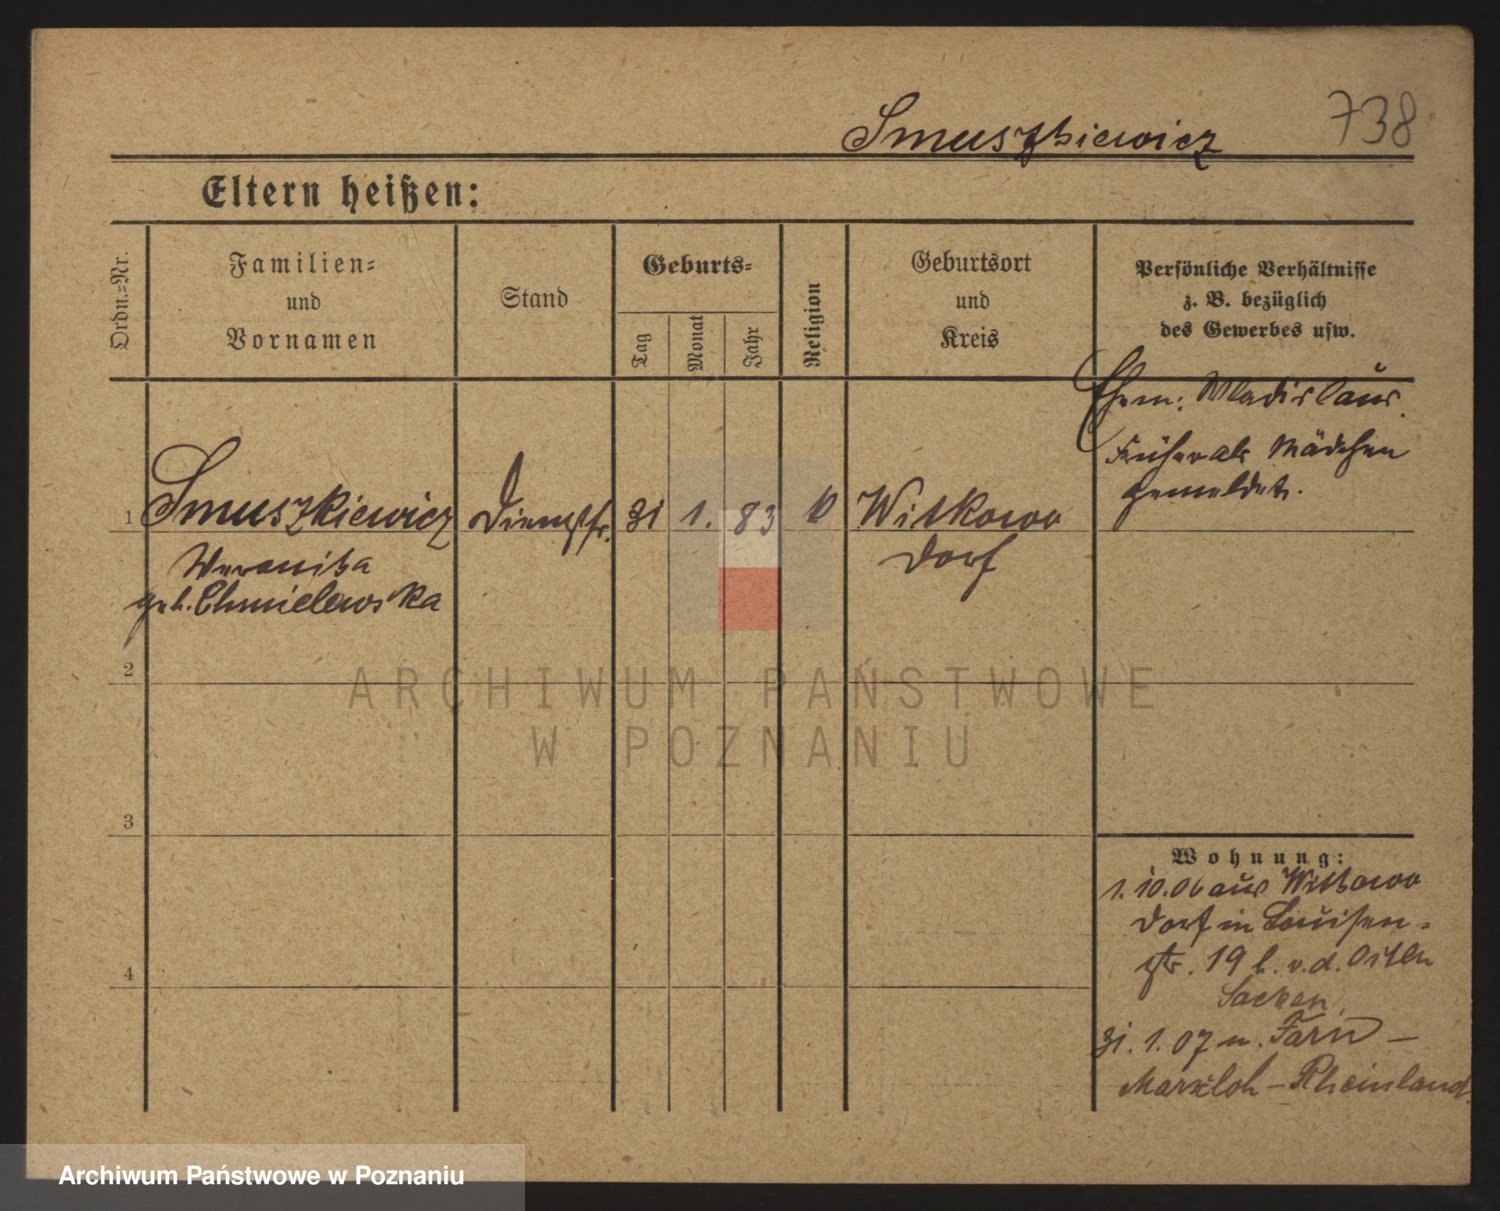 Smuszkiewicz 738
Eltern heißen:
Ordn.=Nr.
Familien=
und
Vornamen
Stand
Geburts=
Tag
Monat
Jahr
Religion
Geburtsort
und
Kreis
Persönliche Verhältnisse
z. B. bezüglich
des Gewerbes usw.
Ehem: Wladislaus.
Früher als Mädchen
gemeldet.
1 Smuszkiewicz Dienstfr. 31 1. 83 k Witkowo
Weronika Dorf
geb. Chmielewska
2
3
4
Wohnung:
1. 10. 06 aus Witkowo
Dorf in Louisen=
str. 19 b. v. d. Osten
Sacken
31. 1. 07 n.
Marxloh – Rheinland
ARCHIWUM PAŃSTWOWE
W POZNANIU
Archiwum Państwowe w Poznaniu